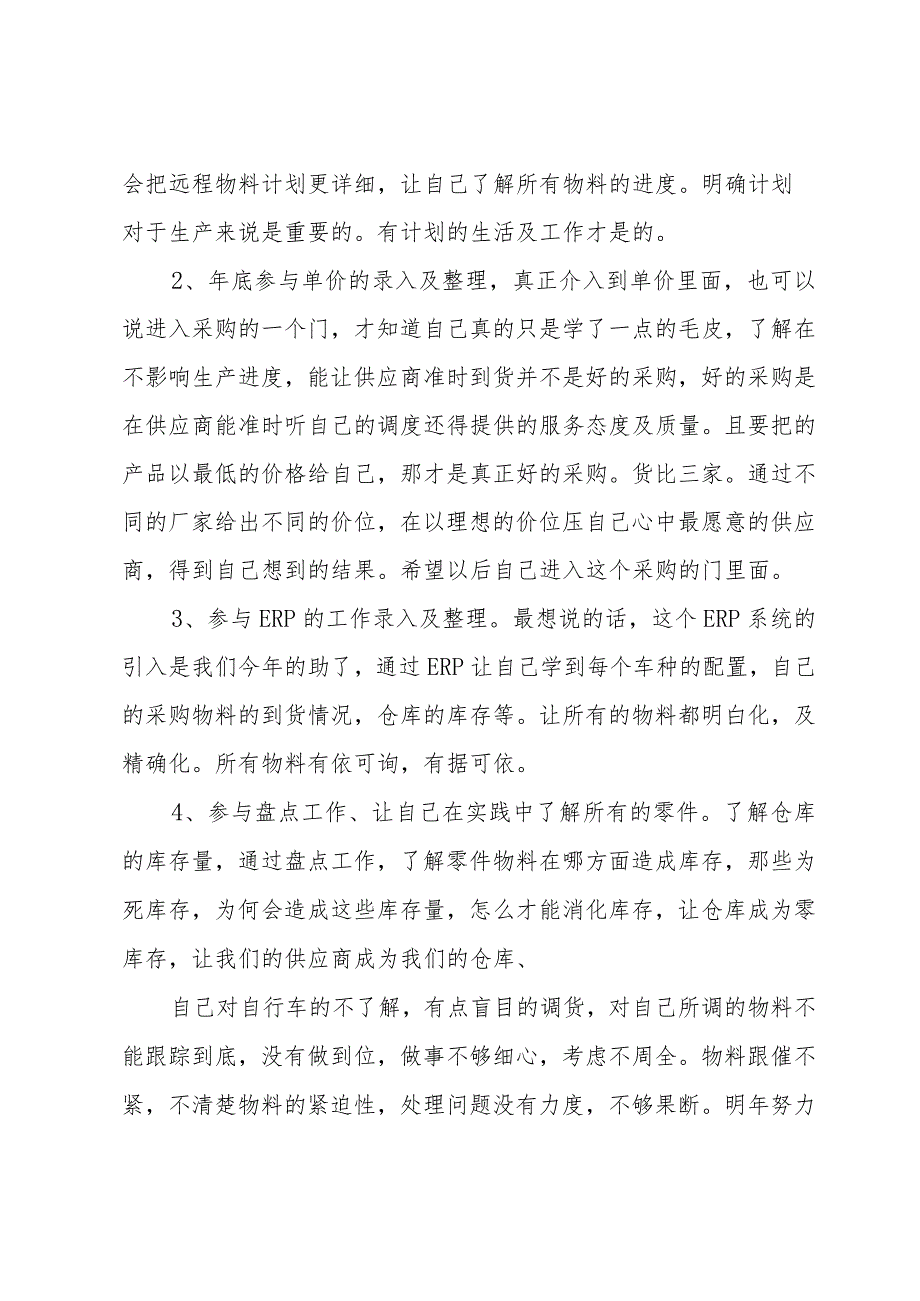 会把远程物料计划更详细，让自己了解所有物料的进度。明确计划
对于生产来说是重要的。有计划的生活及工作才是的。
2、年底参与单价的录入及整理，真正介入到单价里面，也可以
说进入采购的一个门，才知道自己真的只是学了一点的毛皮，了解在
不影响生产进度，能让供应商准时到货并不是好的采购，好的采购是
在供应商能准时听自己的调度还得提供的服务态度及质量。且要把的
产品以最低的价格给自己，那才是真正好的采购。货比三家。通过不
同的厂家给出不同的价位，在以理想的价位压自己心中最愿意的供应
商，得到自己想到的结果。希望以后自己进入这个采购的门里面。
3、参与 ERP 的工作录入及整理。最想说的话，这个 ERP 系统的
引入是我们今年的助了，通过 ERP 让自己学到每个车种的配置，自己
的采购物料的到货情况，仓库的库存等。让所有的物料都明白化，及
精确化。所有物料有依可询，有据可依。
4、参与盘点工作、让自己在实践中了解所有的零件。了解仓库
的库存量，通过盘点工作，了解零件物料在哪方面造成库存，那些为
死库存，为何会造成这些库存量，怎么才能消化库存，让仓库成为零
库存，让我们的供应商成为我们的仓库、
自己对自行车的不了解，有点盲目的调货，对自己所调的物料不
能跟踪到底，没有做到位，做事不够细心，考虑不周全。物料跟催不
紧，不清楚物料的紧迫性，处理问题没有力度，不够果断。明年努力